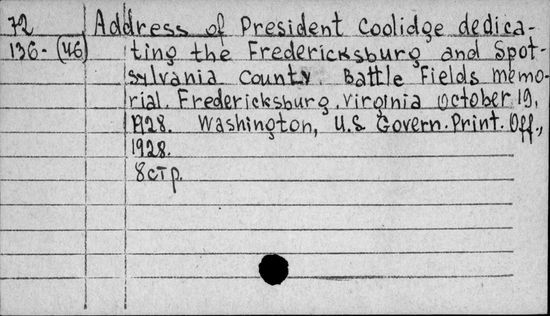 72 Address of President Coolidge dedica-
136-(46) ting the Fredericksburg and Spot-
sylvania County Battle Fields memo-
rial. Fredericksburg, Virginia October 19,
1928. Washington, U.S. Govern. Print. Off.,
1928.
8стр.